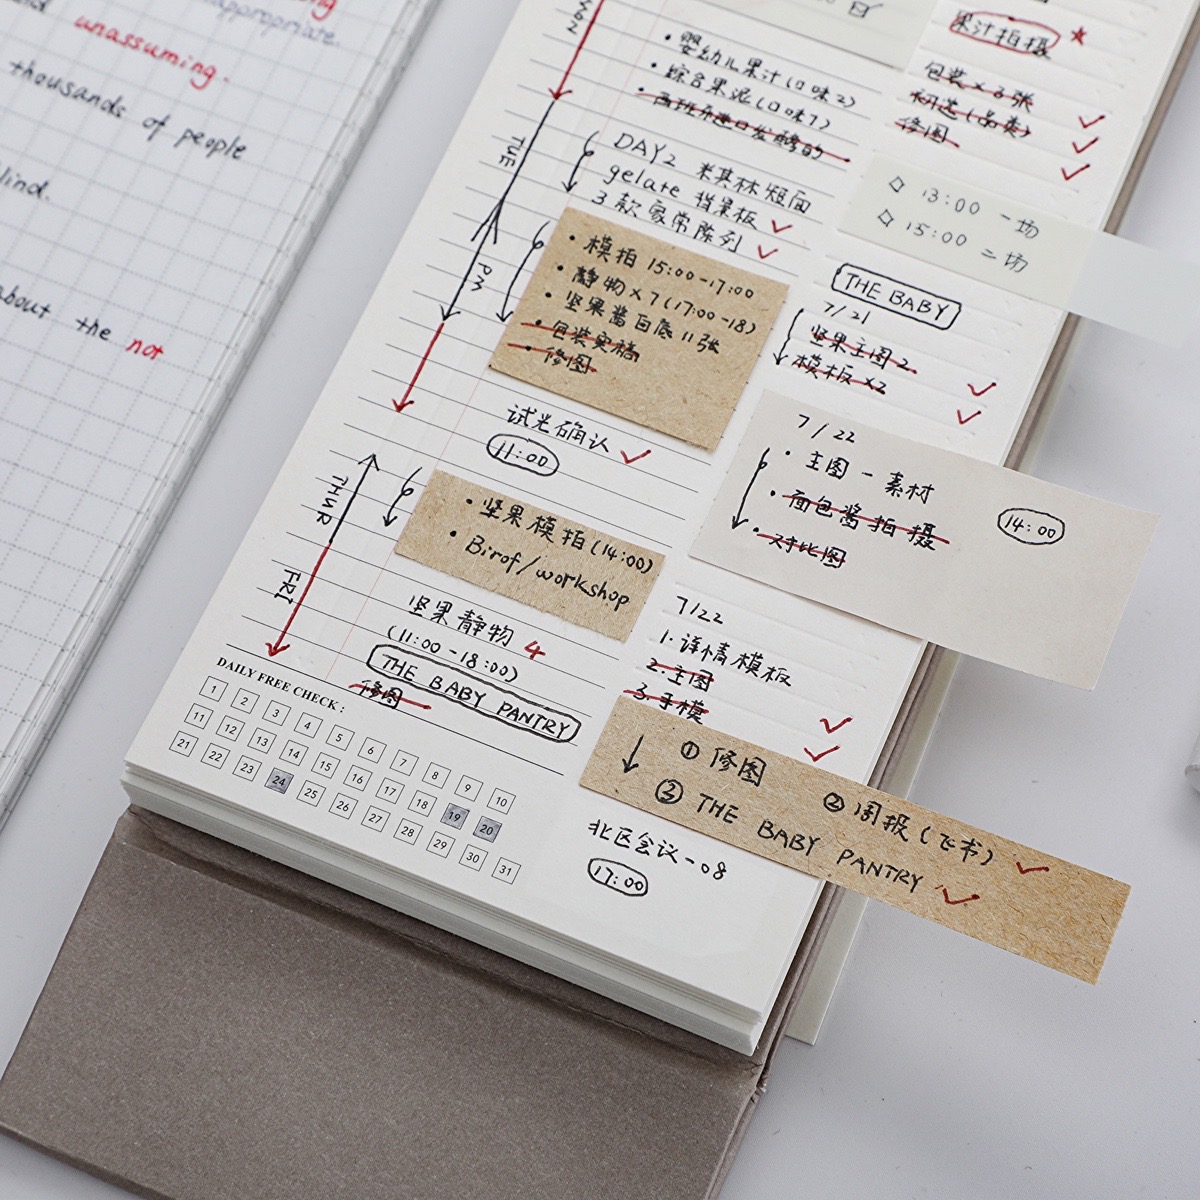 appropriate.
unassuming.
thousands of people
lind.
about the not
日
TUE
PM
THUR
FRI
• 婴幼儿果汁(口味2)
• 综合果泥(口味7)
DAY2 米其林短面
gelate 背景板
3款家常陈列
• 模拍 15:00-17:00
• 静物×7(17:00-18)
• 坚果酱白底11张
• 包装实稿
• 修图
试光确认
11:00
• 坚果模拍(14:00)
• Birof/workshop
坚果静物 4
(11:00-18:00)
THE BABY PANTRY
修图
DAILY FREE CHECK:
1 2 3 4 5 6 7 8 9 10
11 12 13 14 15 16 17 18 19 20
21 22 23 24 25 26 27 28 29 30 31
果汁拍摄 ★
包装×3张
初选(品类)
修图
◇ 13:00 一场
◇ 15:00 二场
THE BABY
7/21
坚果主图2
模板×2
7/22
• 主图一素材
• 面包酱拍摄
• 对比图
14:00
7/22
1. 详情模板
2. 主图
3. 手模
① 修图 ② 周报(飞书)
③ THE BABY PANTRY
北区会议-08
17:00